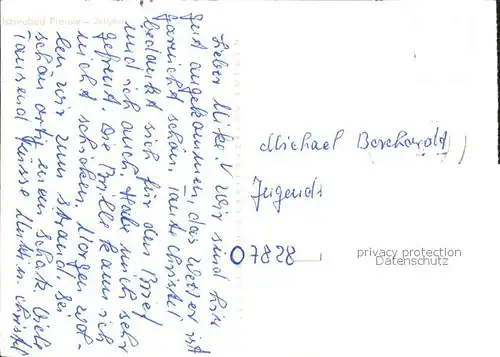 Ostseebad Prerow – Zeltplatz
Lieber Mike! Wir sind hier
gut angekommen, das Wetter ist
garnicht schön. Tante Christel
bedankt sich für den Brief
und ich auch. Habe mich sehr
gefreut. Die Brille kann ich
nicht schicken. Morgen wol-
len wir zum Strand. Sei
schön artig mein Schatz. Viele
Tausend Grüsse Mutti u. Christel
Michael Borchardt
Jugend
07828
privacy protection
Datenschutz